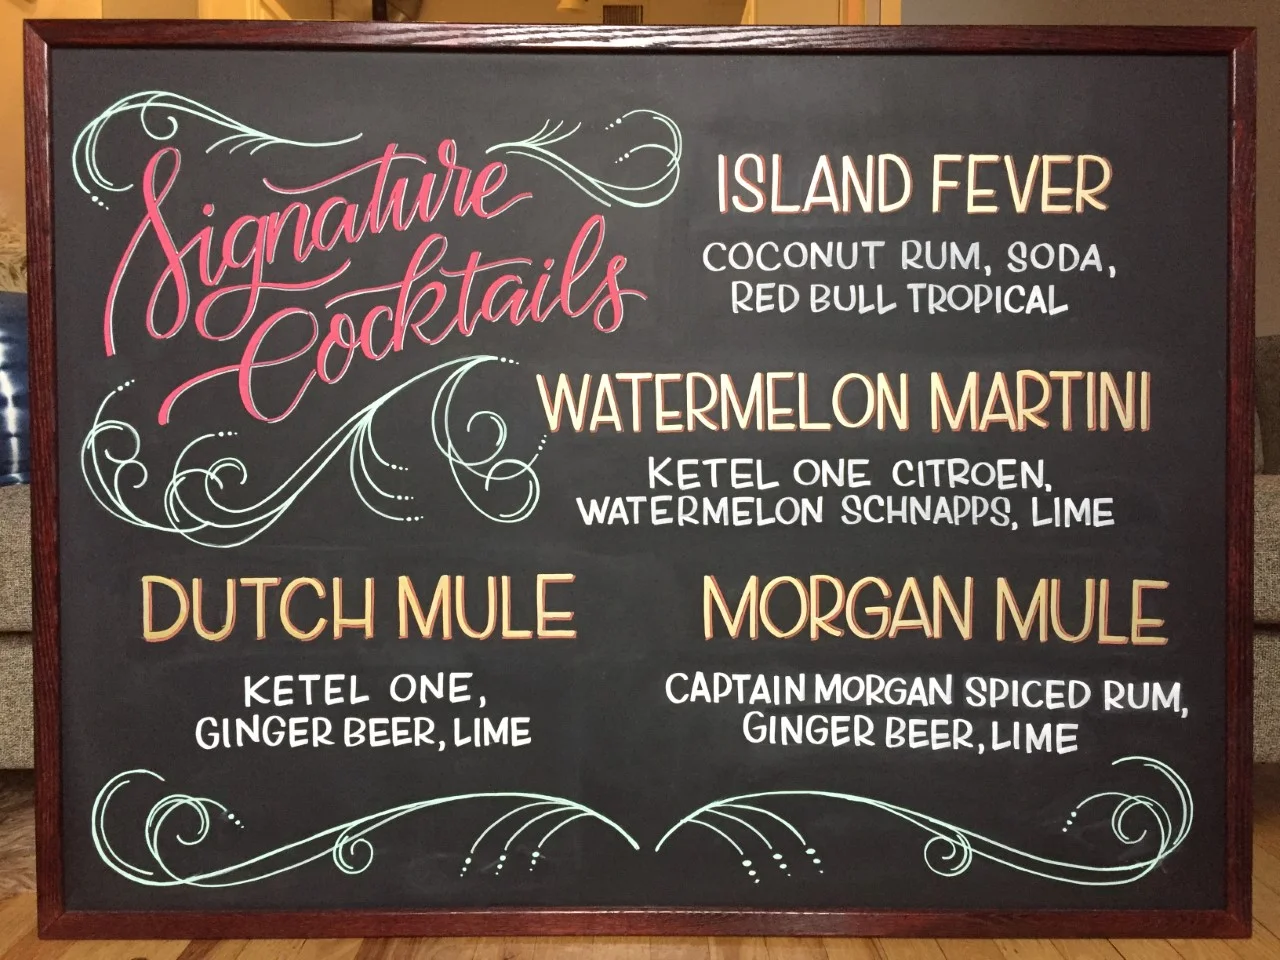 Signature
Cocktails
ISLAND FEVER
COCONUT RUM, SODA,
RED BULL TROPICAL
WATERMELON MARTINI
KETEL ONE CITROEN,
WATERMELON SCHNAPPS, LIME
DUTCH MULE
KETEL ONE,
GINGER BEER, LIME
MORGAN MULE
CAPTAIN MORGAN SPICED RUM,
GINGER BEER, LIME